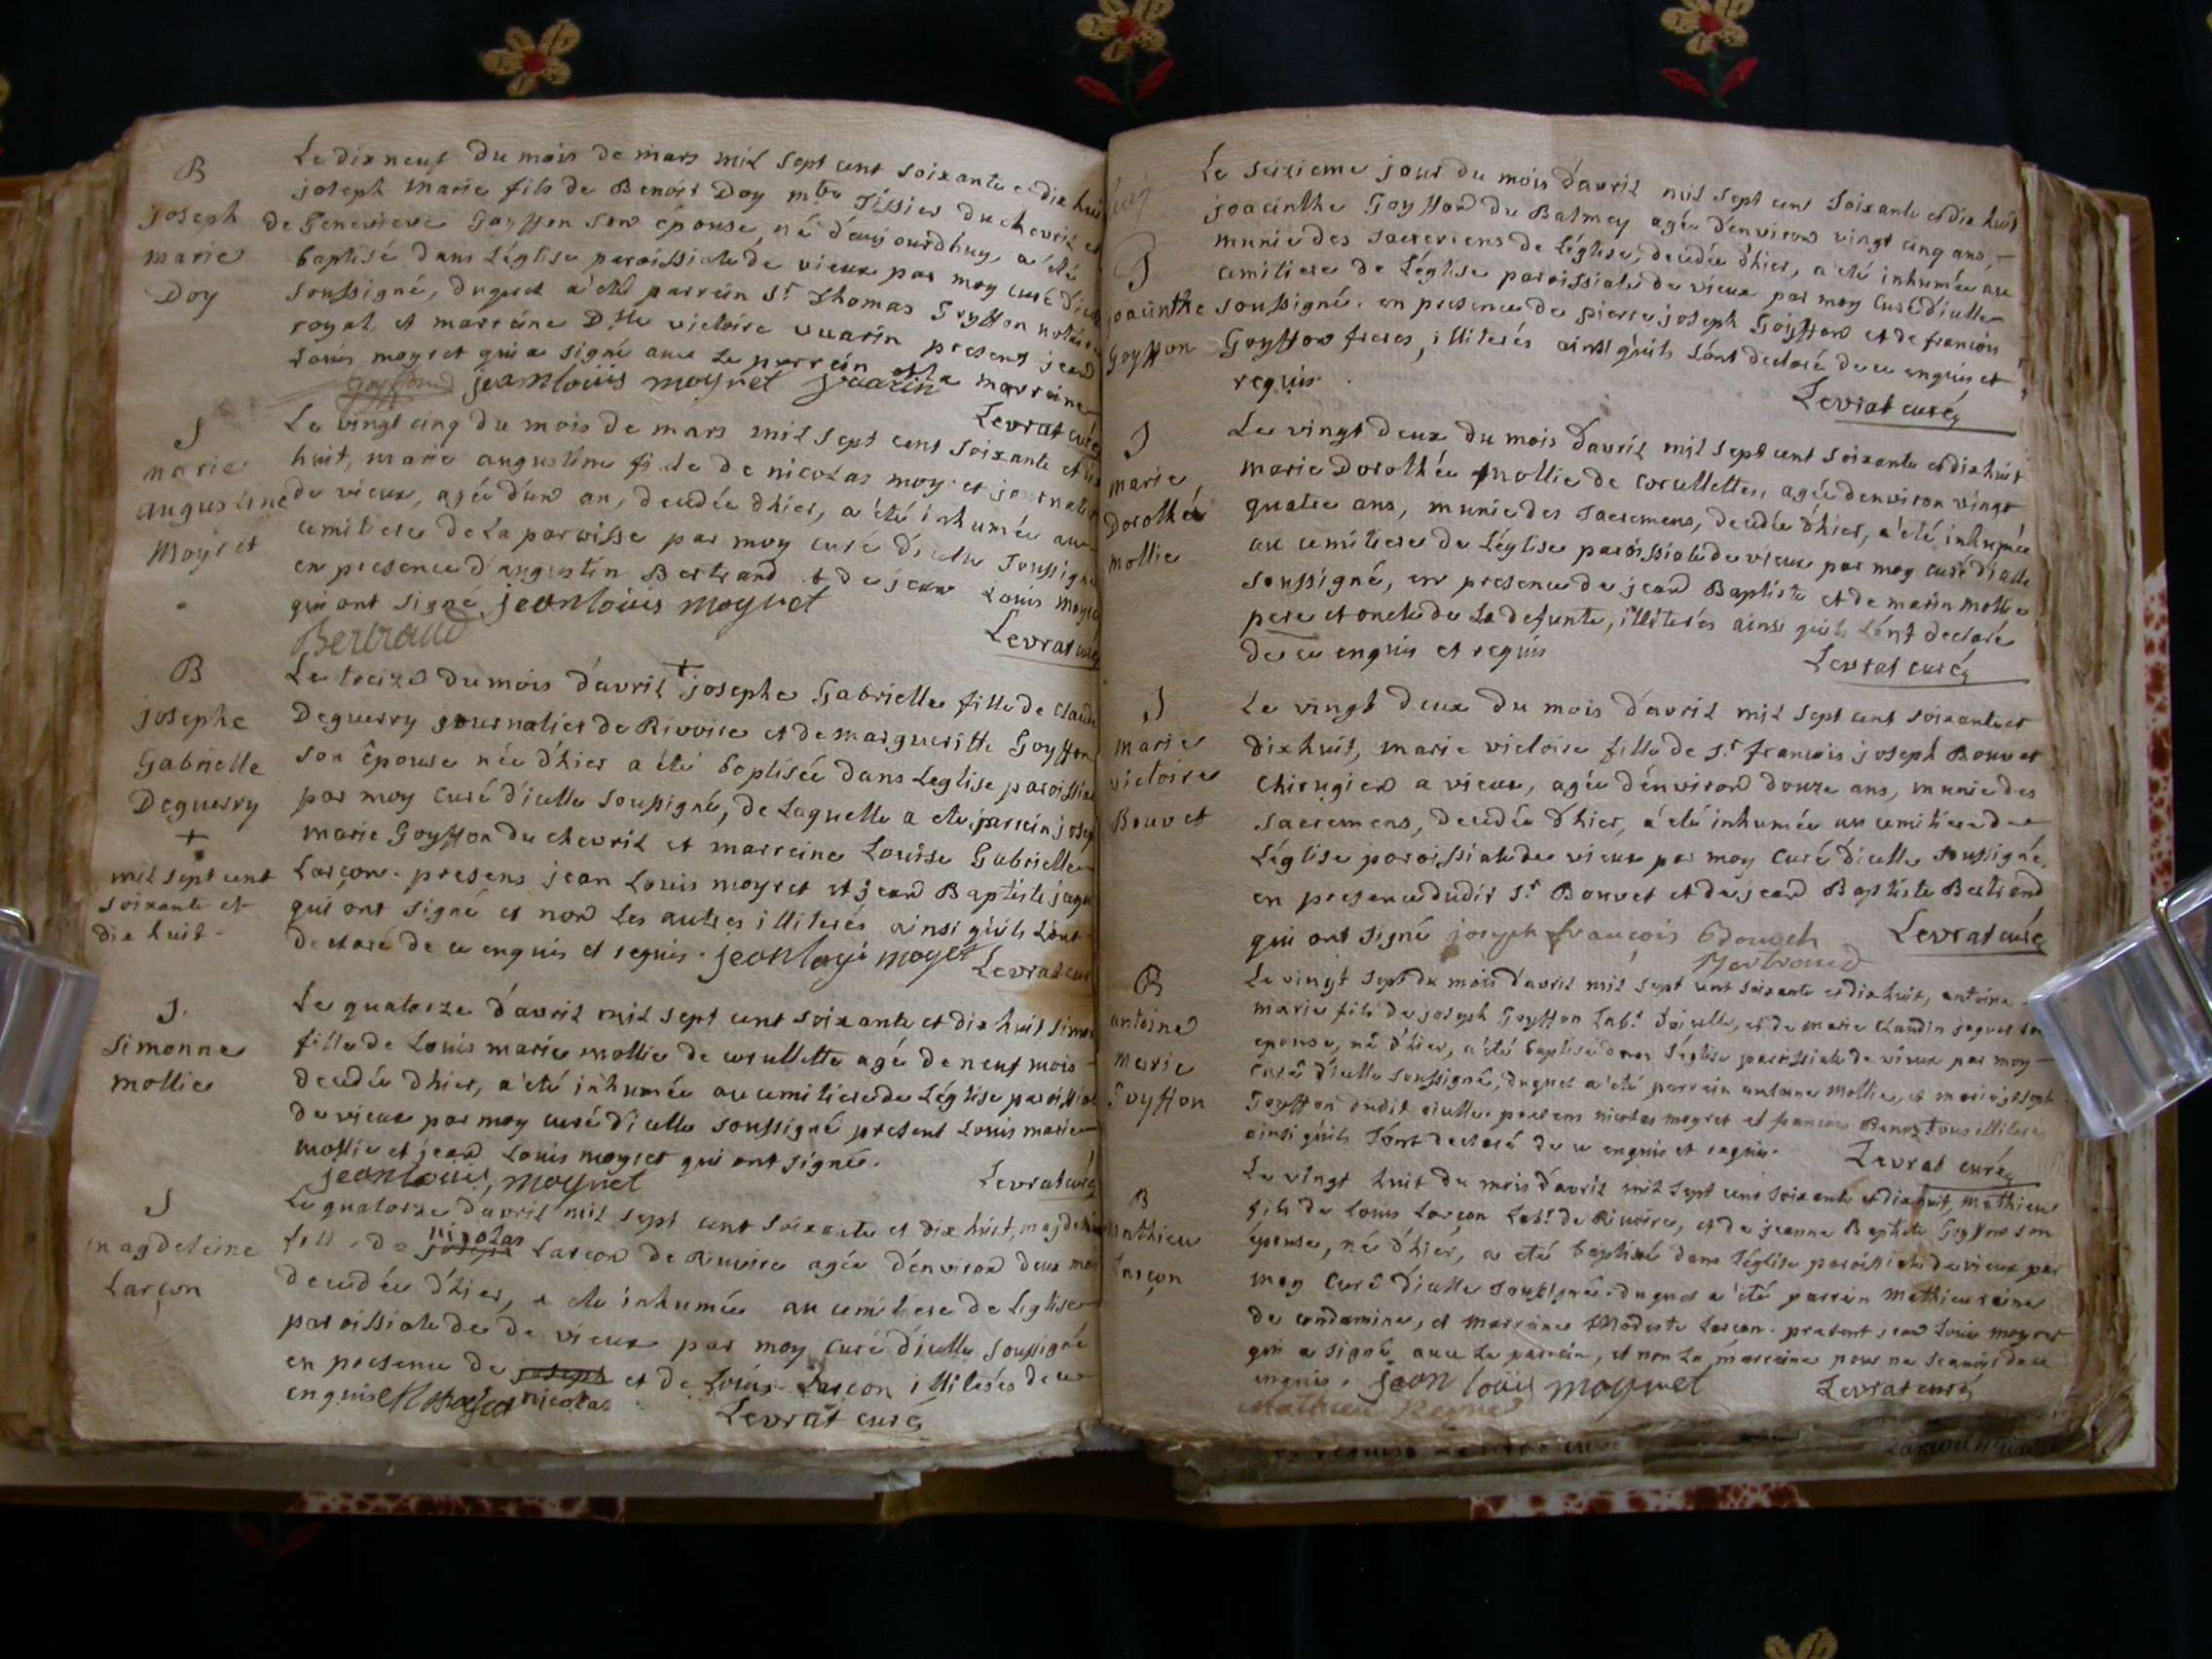 B
joseph
marie
Doy
Le dixneuf du mois de mars mil sept cent soixante et dix huit
joseph marie fils de Benoit Doy mtre Tissier du chevril et
de Genevieve Goyffon son épouse, né d'aujourdhuy, a été
baptisé dans L'église paroissiale de vieux par moy curé d'icelle
soussigné, duquel a été parrein Sr Thomas Goyffon notaire
royal et marreine Dlle victoire vuarin present jean
Louis moyret qui a signé avec Le parrein et La marreine
Goyffond jeanlouiis moyret vuarin
Levrat curé
S
marie
augustine
Moyret
Le vingt cinq du mois de mars mil sept cent soixante et dix
huit, marie augustine fille de nicolas moyret journalier
de vieux, agée d'un an, decedée d'hier, a été inhumée au
cemitiere de La paroisse par moy curé d'icelle soussigné
en presence d'augustin Bertrand et de jean Louis moyret
qui ont signé jeanlouiis moyret
Bertrand
Levrat curé
B
josephe
Gabrielle
Deguerry
+
mil sept cent
soixante et
dix huit
Le treize du mois d'avril + josephe Gabrielle fille de claude
Deguerry journalier de Rivoire et de margueritte Goyffon
son épouse née d'hier a été baptisée dans Leglise paroissiale
par moy curé d'icelle soussigné, de Laquelle a ete parrein joseph
marie Goyffon du chevril et marreine Louise Gabrielle
Larçon. presens jean Louis moyret et jean Baptiste
qui ont signé et non Les autres illiterés ainsi qu'ils L'ont
declaré de ce enquis et requis. jeanlouis moyret
Levrat curé
S
Simonne
mollie
Le quatorze d'avril mil sept cent soixante et dix huit, simonne
fille de Louis marie mollie de corcellette agée de neuf mois
decedée d'hier, a été inhumée au cemitiere de L'église paroissiale
de vieux par moy curé d'icelle soussigné present Louis marie
mollie et jean Louis moyret qui ont signé.
jeanlouiis moyret
Levrat curé
S
magdeleine
Larçon
Le quatorze d'avril mil sept cent soixante et dix huit, magdeleine
fille de joseph nicolas Larçon de Rivoire agée d'environ deux mois
decedée d'hier, a ete inhumée au cemitiere de Leglise
paroissiale de de vieux par moy curé d'icelle soussigné
en presence de joseph et de Louis Larçon illiterés de ce
enquis et requis nicolas
Levrat curé
S
joacinthe
Goyffon
Le seizieme jour du mois d'avril mil sept cent soixante et dix huit
joacinthe Goyffon du Balmey agée d'environ vingt cinq ans,
munie des sacremens de L'église, decedée d'hier, a été inhumée au
cemitiere de L'église paroissiale de vieux par moy Curé d'icelle
soussigné. en presence de pierre joseph Goyffon et de francois
Goyffon freres, illiterés ainsi qu'ils L'ont declaré de ce enquis et
requis.
Levrat curé
S
marie
Dorothée
mollie
Le vingt deux du mois d'avril mil sept cent soixante et dix huit
marie Dorothée mollie de corcellettes, agée denviron vingt
quatre ans, munie des sacremens, decedée d'hier, a été inhumée
au cemitiere de L'église paroissiale de vieux par moy curé d'icelle
soussigné, en presence de jean Baptiste et de marin mollie
pere et oncle de La defunte, illiterés ainsi qu'ils L'ont declaré
de ce enquis et requis
Levrat curé
S
marie
victoire
Bouvet
Le vingt deux du mois d'avril mil sept cent soixante et
dixhuit, marie victoire fille de Sr francois joseph Bouvet
chirugien a vieux, agée d'environ douze ans, munie des
sacremens, decedée d'hier, a été inhumée au cemitiere de
L'église paroissiale de vieux par moy Curé d'icelle soussigné,
en presence dudit Sr Bouvet et de jean Baptiste Bertrand
qui ont signé joseph francois Bouvet
Bertrand
Levrat curé
B
antoine
marie
Goyffon
Le vingt sept du mois d'avril mil sept cent soixante et dix huit, antoine
marie fils de joseph Goyffon Labr d'aiculle, et de marie Claudin jaquet son
epouse, né d'hier, a été baptisé dans L'église paroissiale de vieux par moy
curé d'icelle soussigné, duquel a été parrein antoine mollie, et marie joseph
Goyffon dudit aiculle. presens nicolas moyret et francois Benoz tous illiterés
ainsi qu'ils L'ont declaré de ce enquis et requis.
Levrat curé
B
mathieu
Larçon
Le vingt huit du mois d'avril mil sept cent soixante et dix huit, mathieu
fils de Louis Larçon Labr de Rivoire, et de jeanne Baptiste Goyffon son
épouse, né d'hier, a été baptisé dans L'église paroissiale de vieux par
moy Curé d'icelle soussigné. duquel a été parrein mathieu reine
de condamine, et marreine Modeste Larçon. present jean Louis moyret
qui a signé avec Le parrein, et non La marreine pour ne scavoir de ce
enquis. jean louiis moyret
Mathieu Reyne
Levrat curé